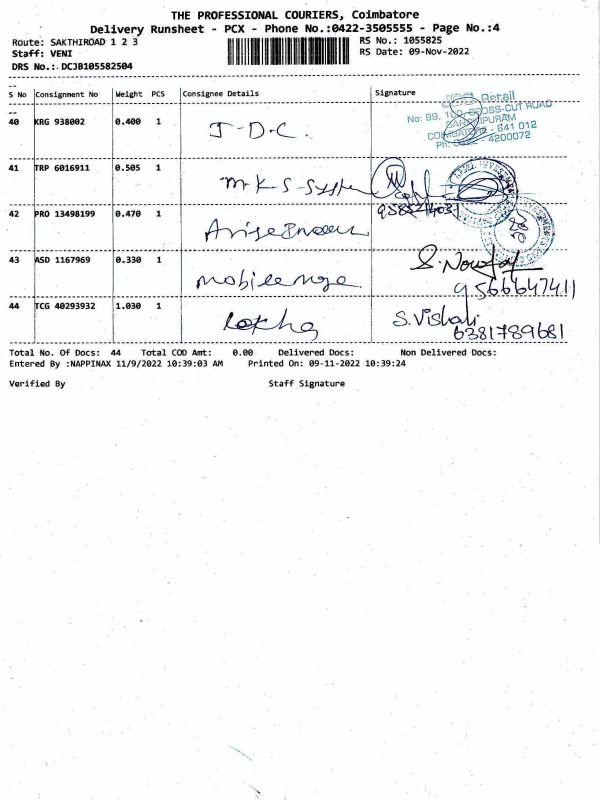 THE PROFESSIONAL COURIERS, Coimbatore
Delivery Runsheet - PCX - Phone No.:0422-3505555 - Page No.:4
Route: SAKTHIROAD 1 2 3
RS No.: 1055825
Staff: VENI
RS Date: 09-Nov-2022
DRS No.: DCJB105582504
S No Consignment No Weight PCS Consignee Details Signature
40 KRG 938002 0.400 1 J-D-C. Retail
CROSS-CUT ROAD
COIMBATORE - 641 012
4200072
41 TRP 6016911 0.505 1 M-K-S-System
42 PRO 13498199 0.470 1 Arise
43 ASD 1167969 0.330 1 mobile S.
9566647411
44 TCG 40293932 1.030 1 S.Vishali
6381789681
Total No. Of Docs: 44 Total COD Amt: 0.00 Delivered Docs: Non Delivered Docs:
Entered By :NAPPINAX 11/9/2022 10:39:03 AM Printed On: 09-11-2022 10:39:24
Verified By Staff Signature